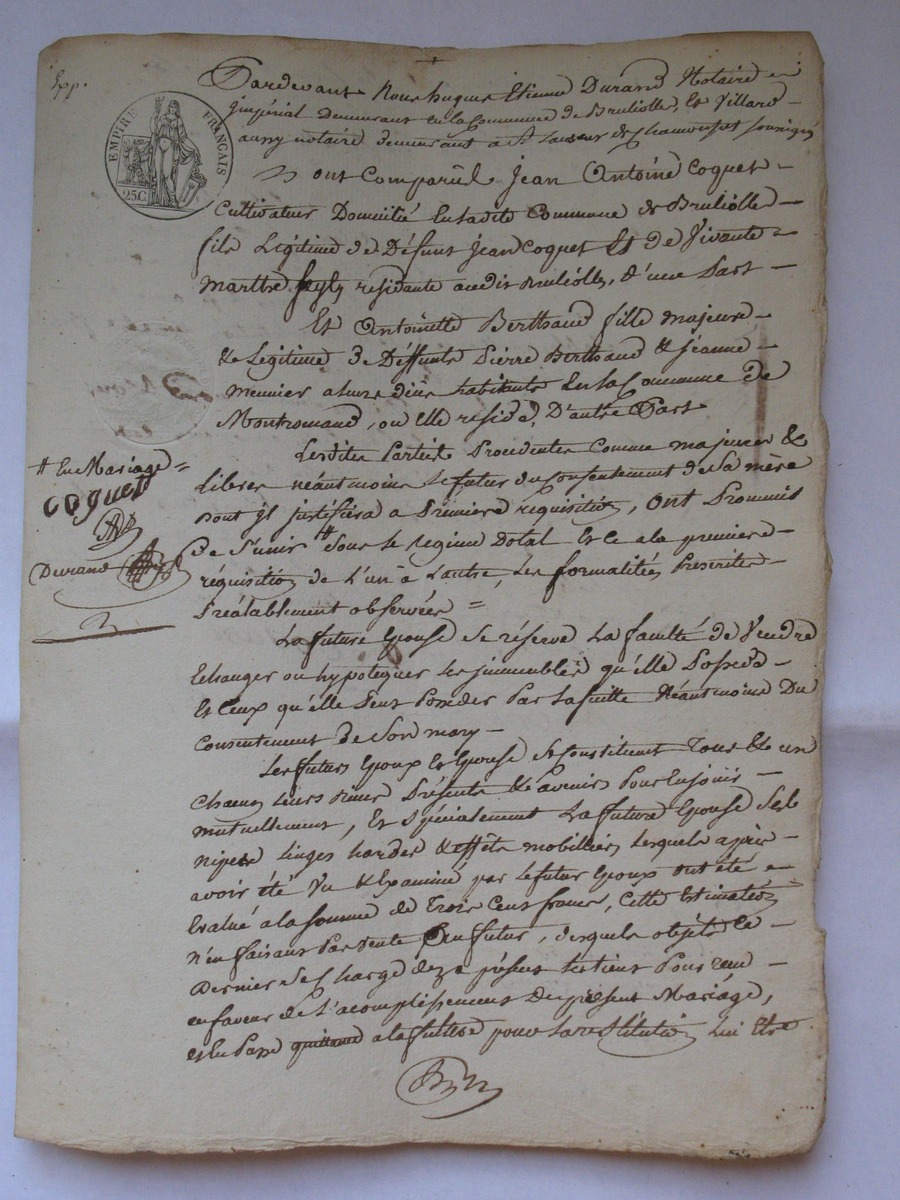 Exp.
EMPIRE FRANÇAIS
25C
Pardevant Nous hugues Etienne Durand Notaire
impérial Demeurant en la Commune de Brulliolle, Et Villard
aussy notaire demeurant a St Laurent de Chamousset soussignés
ont Comparud Jean Antoine Coquet
Cultivateur Domicilié En ladite Commune de Brulliolle
fils Légitime de Défunt Jean Coquet Et de Vivante
Marthe residante audit Brulliolle, d'une Part
Et Antoinette Berthaud fille majeure
& Légitime de Deffunts Pierre Berthaud & Jeanne
Meunier a leurs dècè habitants En la Commune de
Montromand, ou elle reside, D'autre Part
Lesdites Parties Procedantes Comme majeures &
Libres néantmoins le futur du Consentement de Sa mère
dont il justifiéra a Prémière requisition, Ont Promis
De S'unir # Sous le regime Dotal Et ce a la premiere
réquisition de L'un à L'autre, Les formalités Prescrites
Préalablement observées =
# En Mariage =
Coquet
Durand
La future Epouse Se réserve La faculté de Vendre
Echanger ou hypotequer les immeubles qu'elle Possede
Et Ceux qu'elle Peut Posseder Par la suitte Néantmoins Du
Consentement De Son mary
Les futurs Epoux Et Epouse Se Constituent Tous & un
Chacun leurs Biens Présents & avenirs Pour En jouir
mutuellement, Et Spécialement La future Epouse Ses
nipes linges hardes & effets mobilliers lesquels après
avoir été Vu & Examiné par le futur Epoux ont été
Evalué a la somme de Trois Cent francs, Cette Estimation
n'en faisant Pas Vente au futur, desquels objéts Ce
Dernier Se Charge dez a présent les tient Pour reçu
en faveur de L'acomplissement Du présent Mariage,
et En Passe quittance a la future pour la restitution Lui Etre